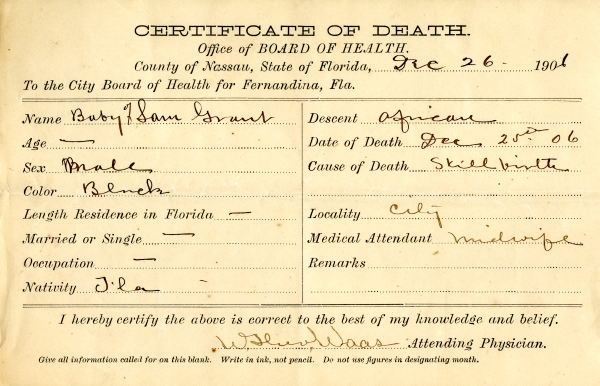 CERTIFICATE OF DEATH.
Office of BOARD OF HEALTH.
County of Nassau, State of Florida, Dec 26 - 1906
To the City Board of Health for Fernandina, Fla.
Name Baby of Sam Grant
Age —
Sex Male
Color Black
Length Residence in Florida —
Married or Single —
Occupation —
Nativity Fla
Descent African
Date of Death Dec 25th 06
Cause of Death Still birth
Locality City
Medical Attendant Midwife
Remarks
I hereby certify the above is correct to the best of my knowledge and belief.
Waas Attending Physician.
Give all information called for on this blank. Write in ink, not pencil. Do not use figures in designating month.